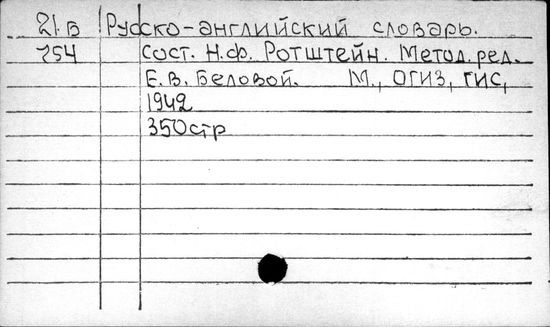 21.Б Русско-английский словарь.
754 Сост. Н.Ф. Ротштейн. Метод. ред.
Е.В. Беловой. М., ОГИЗ, ГИС,
1942
350стр